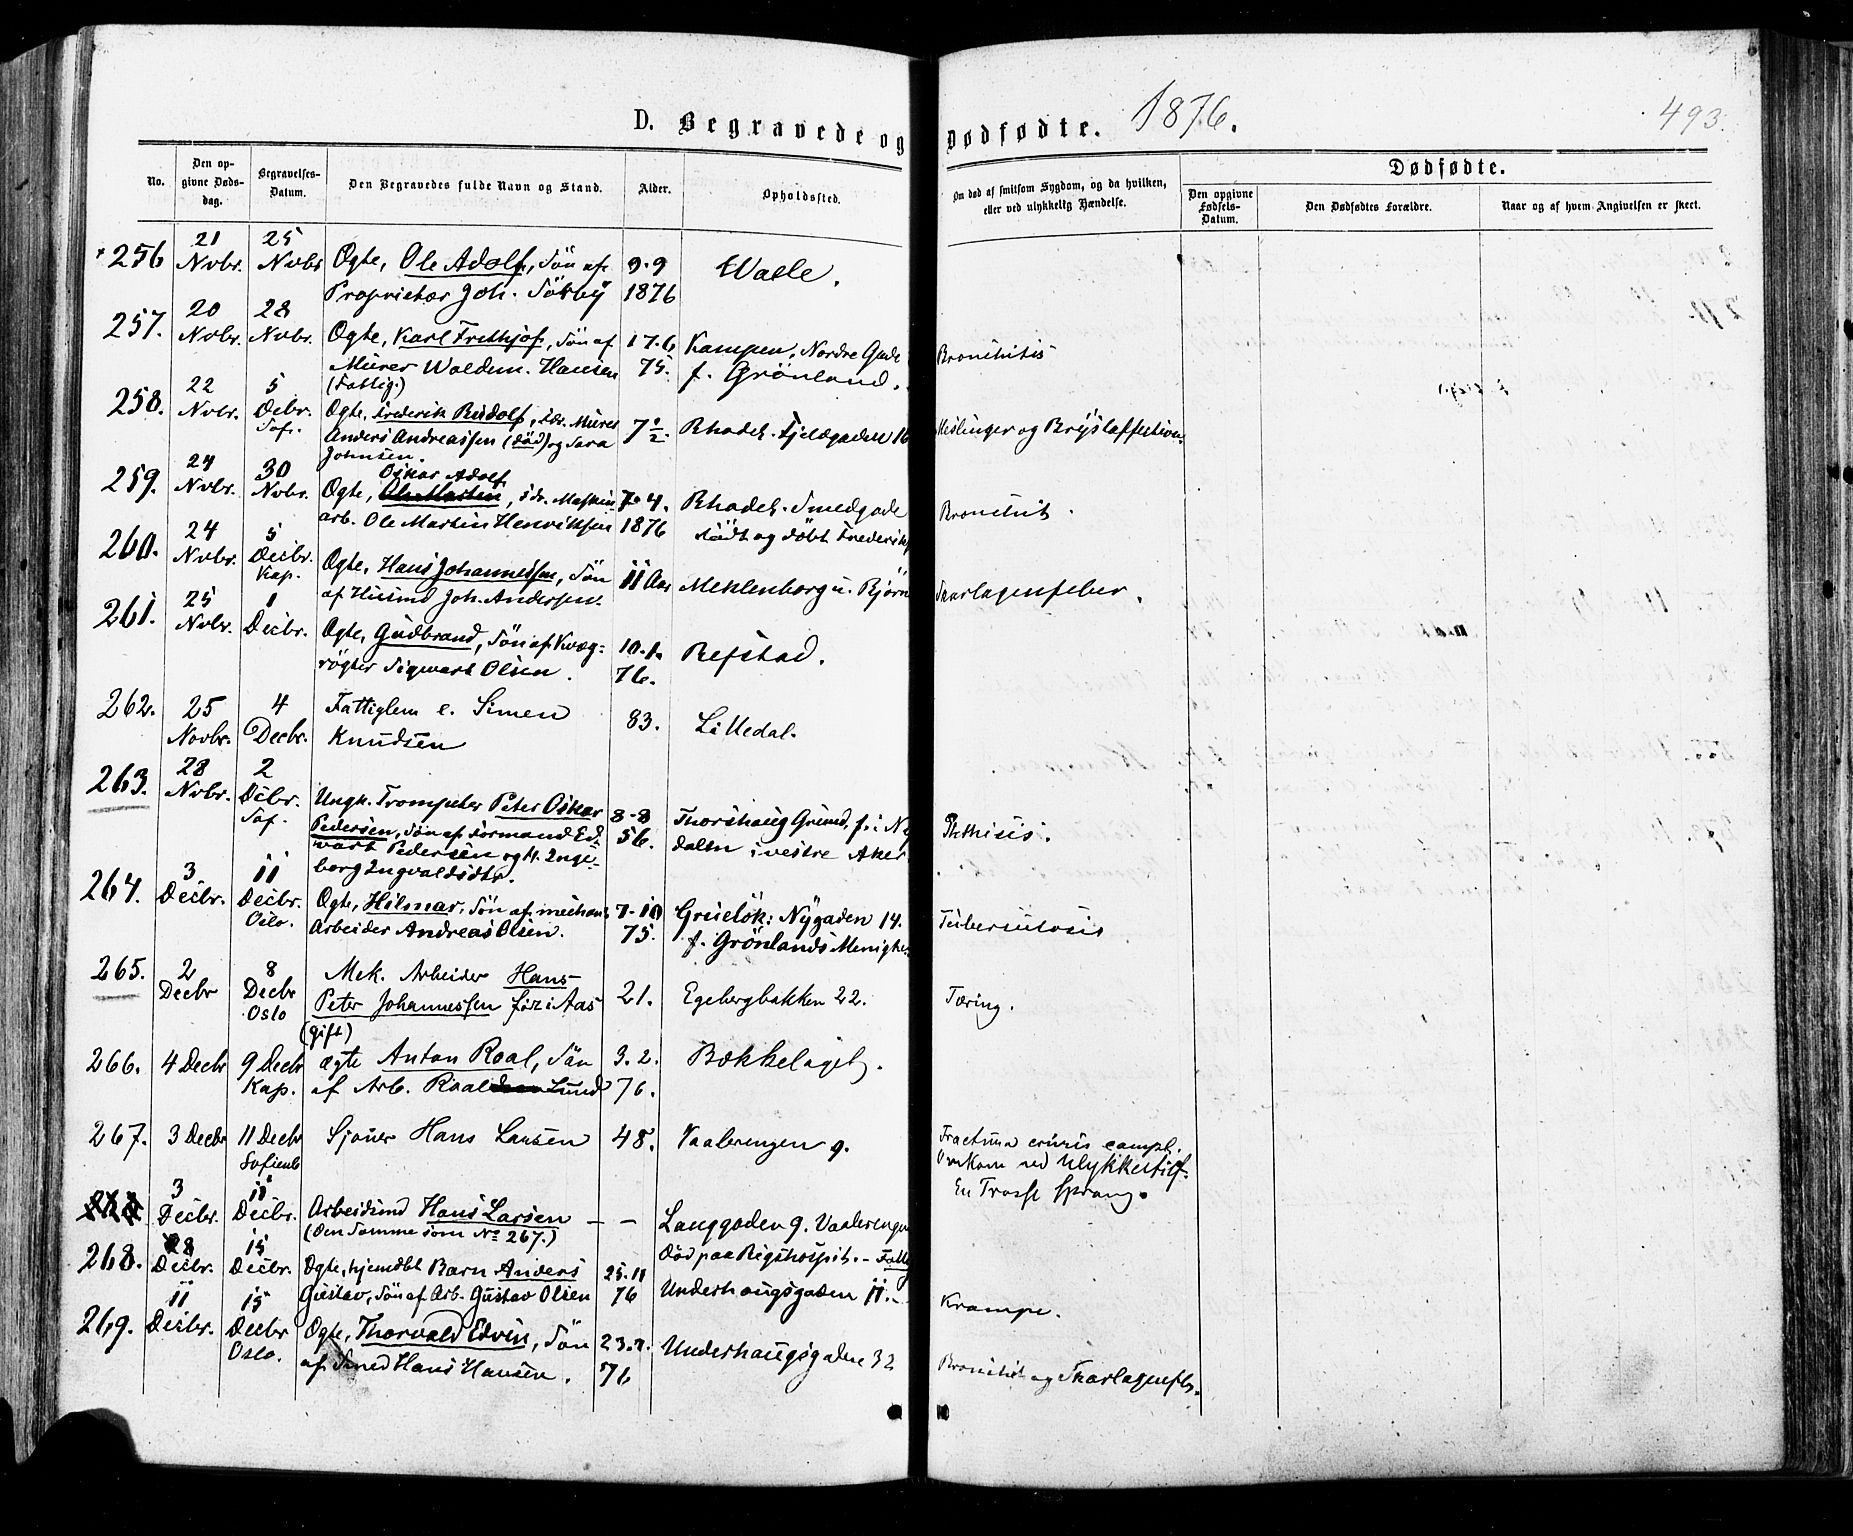 D. Begravede og Dødfødte. 1876.
493.
No.
Den opgivne Dødsdag.
Begravelses-Datum.
Den Begravedes fulde Navn og Stand.
Alder.
Opholdssted.
Om død af smitsom Sygdom, og da hvilken, eller ved ulykkelig Hændelse.
Dødfødte.
Den opgivne Fødsels-Datum.
Den Dødfødtes Forældre.
Naar og af hvem Angivelsen er skeet.
256 21 Novbr. 25 Novbr Ægte, Ole Adolf, Søn af 9-9 Waale.
Proprietær Joh. 1876
257. 20 Novbr. 28 Novbr. Ægte, Karl Frithjof, Søn af 17-6 Kampen, Nordre Gade Bronchitis
Murer Waldem. Hansen 75. f. Grönland.
(Fattig.)
258. 22 Novbr. 5 Decbr. Sof. Ægte, Frederik Rudolf, Murer 7½ Rhodel. Fjeldgaden 16
Anders Andreassen (död) og Sara
Johnsen.
259. 24 Novbr. 30 Novbr. Oskar Adolf
Ægte, Ole Martin, Maskin 7-4. Rhodel. Smedgade Bronchit.
arb. Ole Martin Henriksen 1876 födt og döbt
260. 24 Novbr. 5 Decbr. Kap. Ægte, Hans Johannessen, Søn 11 Aar Meklenborg u. Bjørn Skarlagensfeber.
af Husmd Joh. Andersen.
261. 25 Novbr. 1 Decbr. Ægte, Gudbrand, Søn af Kvæg- 10-1. Refstad.
røgter Sigvart Olsen. 76.
262. 25 Novbr. 4 Decbr. Fattiglem e. Simen 83. Lilledal.
Knudsen
263. 28 Novbr. 2 Decbr. Sof. Ungk. Trompeter Peter Oskar 8-8 Thorshaug Grund, f. i Phthisis.
Pedersen, Søn af Formand Ed- 56. dalen i vestre Aker
vart Pedersen og H. Inge-
borg Ingvaldsdtr.
264. 3 Decbr. 11 Decbr. Oslo. Ægte, Hilmar, Søn af mechan. 7-10 Grüslök: Nygaden 14. Tuberculosis
Arbeider Andreas Olsen. 75. f. Grönlands Menighe
265. 2 Decbr 8 Decbr Oslo Mek. Arbeider Hans 21. Egebergbakken 22. Tæring.
Peter Johannessen föd i Aas
(gift)
266. 4 Decbr 9 Decbr Kap. ægte Anton Roal, Søn 3. 2. Bækkelaget.
af Arb. Roald Lund 76.
267. 3 Decbr 11 Decbr Sofienb Sjouer Hans Larsen 48. Vaalerengen 9. Fractura cruris compl.
Omkom ved Ulykkestilf.
En Trosse sprang.
268 3 Decbr. 11 Decbr. Arbeidsmd Hans Larsen — — Langgaden 9. Vaalerengen
(den Samme som No 267.) död paa Rigshospit.
268. 8 Decbr. 15 Decbr. Ægte, hjemdbt Barn Anders 25-11
Gustav, Søn af Arb. Gustav Olsen 76 Underhaugsgaden 11. Krampe.
269. 11 Decbr. 15 Decbr Oslo. Ægte, Thorvald Edvin, Søn 23.7. Underhaugsgaden 32 Bronchit og Skarlagensfb.
af Smed Hans Hansen. 76